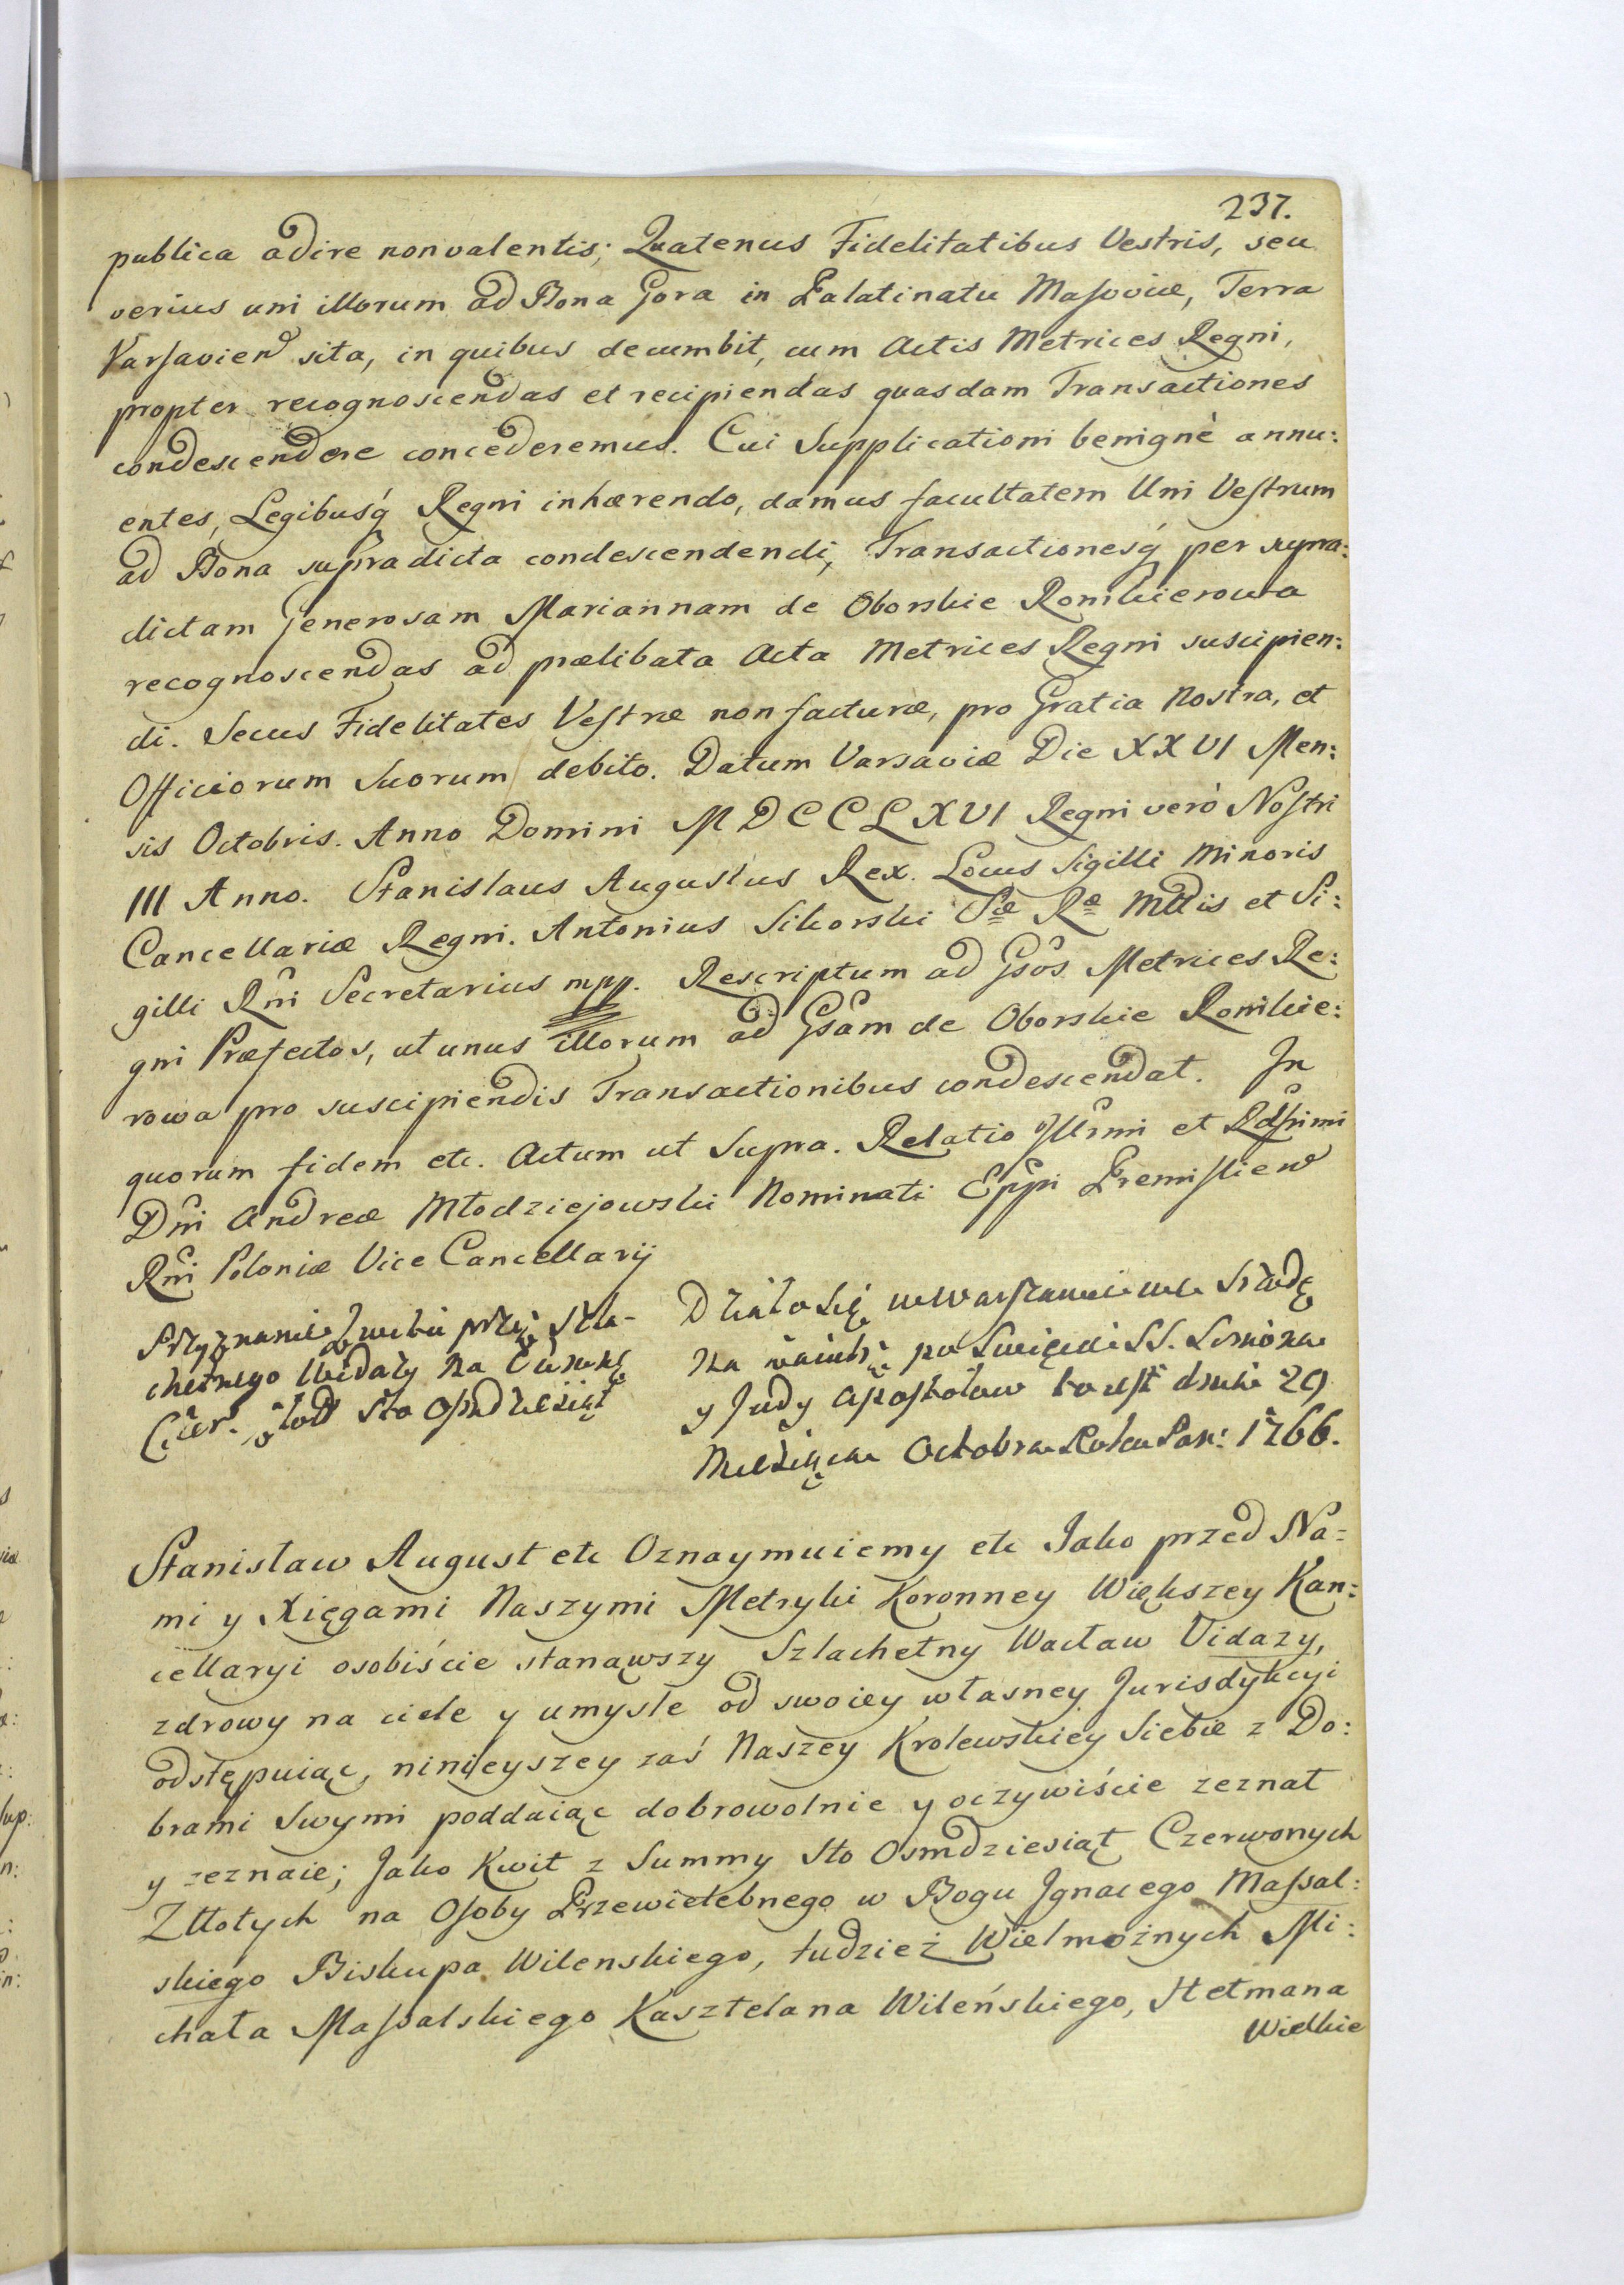 237.
publica adire non valentis; Quatenus Fidelitatibus Vestris, seu
verius uni illorum ad Bona Gora in Palatinatu Masoviæ, Terra
Varsavien sita, in quibus decumbit, cum Actis Metrices Regni,
propter recognoscendas et recipiendas quasdam Transactiones
condescendere concederemus. Cui Supplicationi benignè annu:
entes, Legibusq́ Regni inhærendo, damus facultatem Uni Vestrum
ad Bona supradicta condescendendi, Transactionesq́ per supra:
dictam Generosam Mariannam de Oborskie Ronikierowa
recognoscendas ad prælibata Acta Metrices Regni suscipien:
di. Secus Fidelitates Vestræ non facturæ, pro Gratia Nostra, et
Officiorum Suorum debito. Datum Varsaviæ Die XXVI Men:
sis Octobris. Anno Domini MDCCLXVI Regni verò Nostri
III Anno. Stanislaus Augustus Rex. Locus Sigilli Minoris
Cancellariæ Regni. Antonius Sikorski Sæ Ræ Mttis et Si:
gilli Rni Secretarius mpp. Rescriptum ad Gsos Metrices Re:
gni Præfectos, ut unus illorum ad Gsam de Oborskie Ronikie:
rowa pro suscipiendis Transactionibus condescendat. In
quorum fidem etc. Actum ut Supra. Relatio Illrmi et Rdssimi
Dni Andreæ Młodziejowski Nominati Eppi Premislien
Rni Poloniæ Vice Cancellarij
Przyznanie Kwitu przez Szla-
chetnego Widazy na Summę
Czer. Złott Sto Osmdziesiąt
Działo się w Warszawie we Srzodę
na zaiutrz po Swięcie SS. Szmona
y Judy Apostołow to iest dnia 29
Miesiąca Octobra Roku Pan: 1766.
Stanisław August etc Oznaymuiemy etc Jako przed Na=
mi y Xięgami Naszymi Metryki Koronney Większey Kan:
cellaryi osobiście stanąwszy Szlachetny Wacław Vidazy,
zdrowy na ciele y umyśle od swoiey własney Jurisdykcyi
odstępuiąc, ninieyszey zaś Naszey Krolewskiey Siebie z Do:
brami Swymi poddaiąc dobrowolnie y oczywiście zeznał
y zeznaie; Jako Kwit z Summy Sto Osmdziesiąt Czerwonych
Złłotych na Osoby Przewielebnego w Bogu Ignacego Massal:
skiego Biskupa Wilenskiego, tudzież Wielmożnych Mi:
chała Massalskiego Kasztelana Wileńskiego, Hetmana
Wielkie